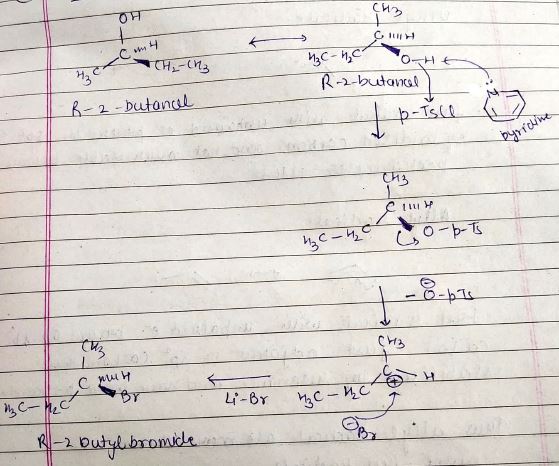 OH
C ''''H
H3C CH2-CH3
R-2-butanol
CH3
C ''''H
H3C-H2C O-H
R-2-butanol
N̈
pyridine
p-TsCl
CH3
C ''''H
H3C-H2C O-p-Ts
-⊖O-pTs
CH3
C H
H3C-H2C ⊕
⊖Br
Li-Br
CH3
C ''''H
H3C-H2C Br
R-2 butyl bromide